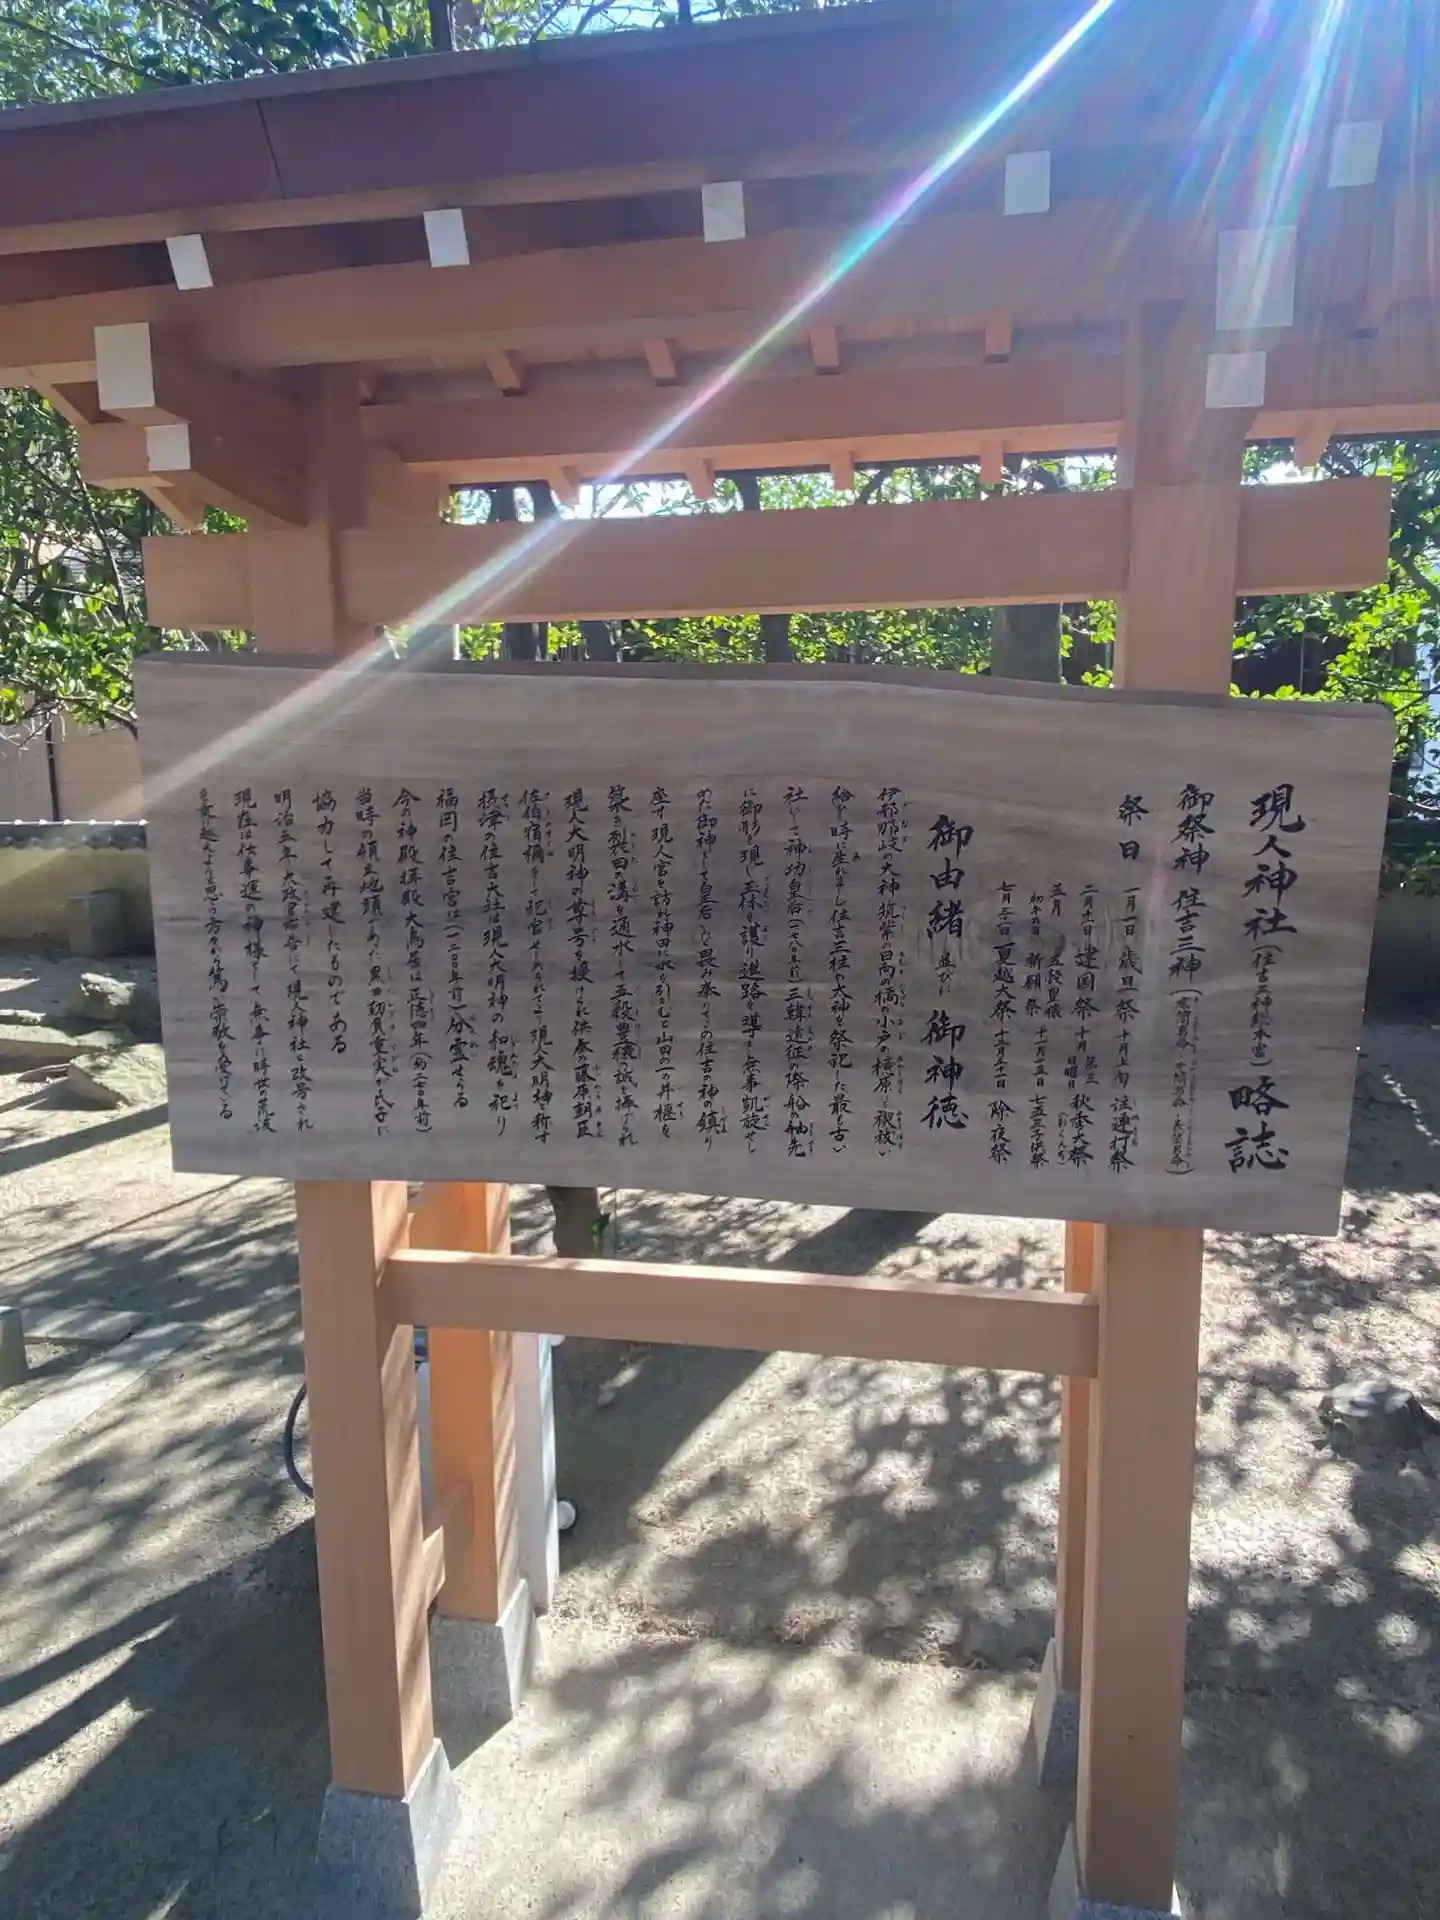 現人神社(住吉三神総本宮)略誌
御祭神 住吉三神(底筒男命・中筒男命・表筒男命)
祭日 一月一日 歳旦祭 十月上旬 注連打祭
二月十一日 建国祭 十月 第三日曜日 秋季大祭(おくんち)
五月 五穀豊穣
初午の日 祈願祭 十一月十五日 七五三子供祭
七月三十日 夏越大祭 十二月三十一日 除夜祭
御由緒 並びに 御神徳
伊邪那岐の大神筑紫の日向の橘の小戸の檍原にて禊祓い
給いし時に生れましし住吉三柱の大神を祭祀した最も古い
社にして神功皇后(一七八〇年前)三韓遠征の際船の舳先
に御形を現し玉体を護り進路を導き無事凱旋せし
めた御神として皇后いたく畏み奉りてこの住吉の神の鎮り
座す現人宮を訪れ神田に水を引かむと山田の一の井堰を
築き裂田の溝を通水して五穀豊穣の誠を捧げられ
現人大明神の尊号を授けられ供奉の藤原朝臣
佐伯宿禰をして祀官せしめられてより現人大明神と称す
摂津の住吉大社は現人大明神の和魂を祀り
福岡の住吉宮は(一二〇〇年前)分霊せらる
今の神殿拝殿大鳥居は正徳四年(約二七〇年前)
当時の領主地頭であった黒田初負重実が氏子に
協力して再建したものである
明治五年太政官布告にて現人神社と改号され
現在は仕事運の神様として無事に時世の荒波
を乗り越えようと思う方々から篤い崇敬を受けている